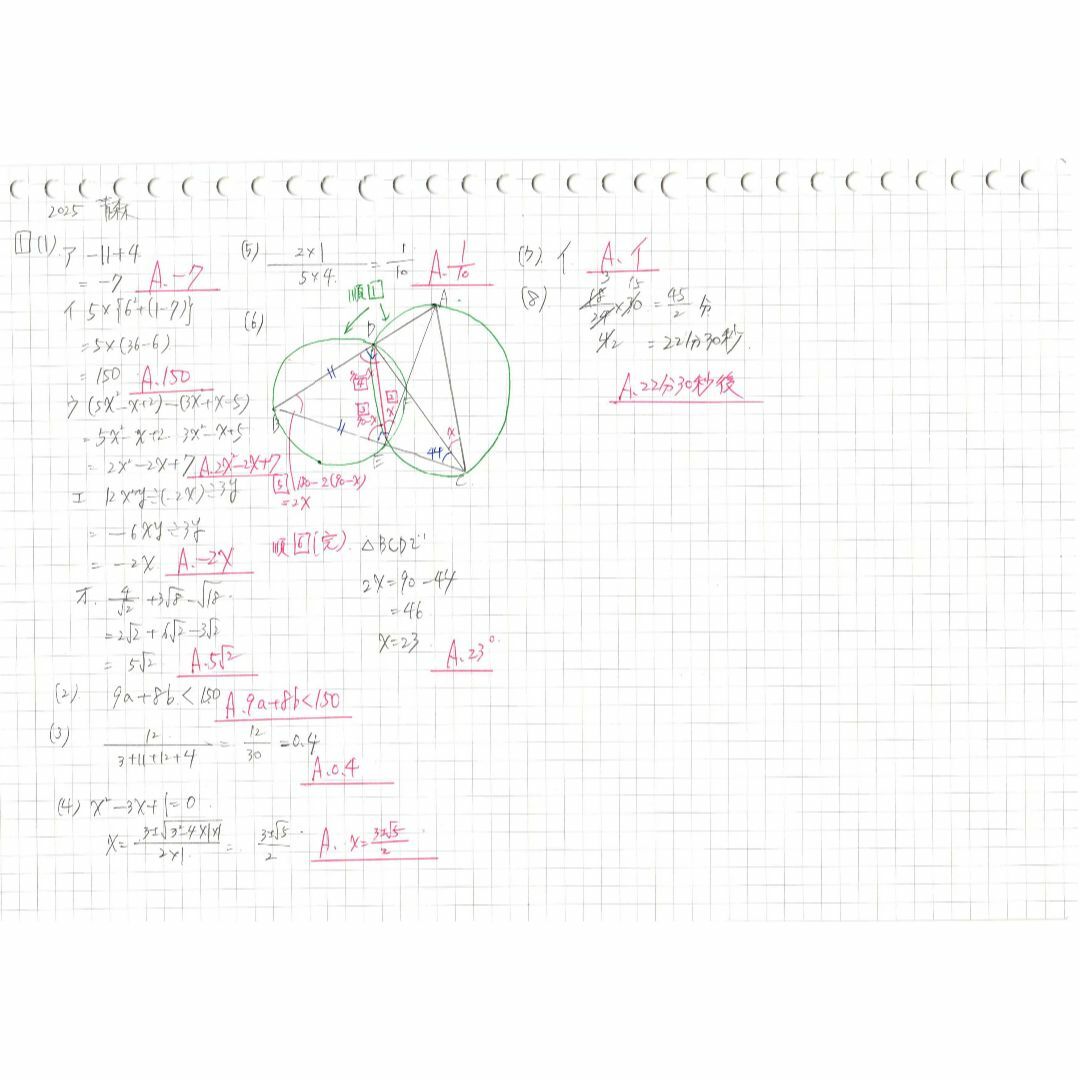 2025 青森
1 (1) ア -11+4
= -7 A. -7
イ 5×{6²+(1-7)}
=5×(36-6)
= 150 A. 150
ウ (5x²-x+2)-(3x²+x-5)
=5x²-x+2-3x²-x+5
= 2x²-2x+7 A. 2x²-2x+7
エ 12x²y÷(-2x)÷3y
= -6xy÷3y
= -2x A. -2x
オ. 4/√2 +3√8-√18
=2√2+6√2-3√2
= 5√2 A. 5√2
(2) 9a+8b<150 A. 9a+8b<150
(3) 12/(3+11+12+4) = 12/30 =0.4
A. 0.4
(4) x²-3x+1=0
x= (3±√(3²-4×1×1))/(2×1) = (3±√5)/2 A. x= (3±√5)/2
(5) (2×1)/(5×4) = 1/10 A. 1/10
(6)
順1
A
D
B
E
C
44
x
2
x
3
90-x
4
5 180-2(90-x)
=2x
順6(完) △BCDで
2x=90-44
=46
x=23 A. 23°
(7) イ A. イ
(8) 18/24×30 = 45/2 分
3
15
4 2 =22分30秒
A. 22分30秒後